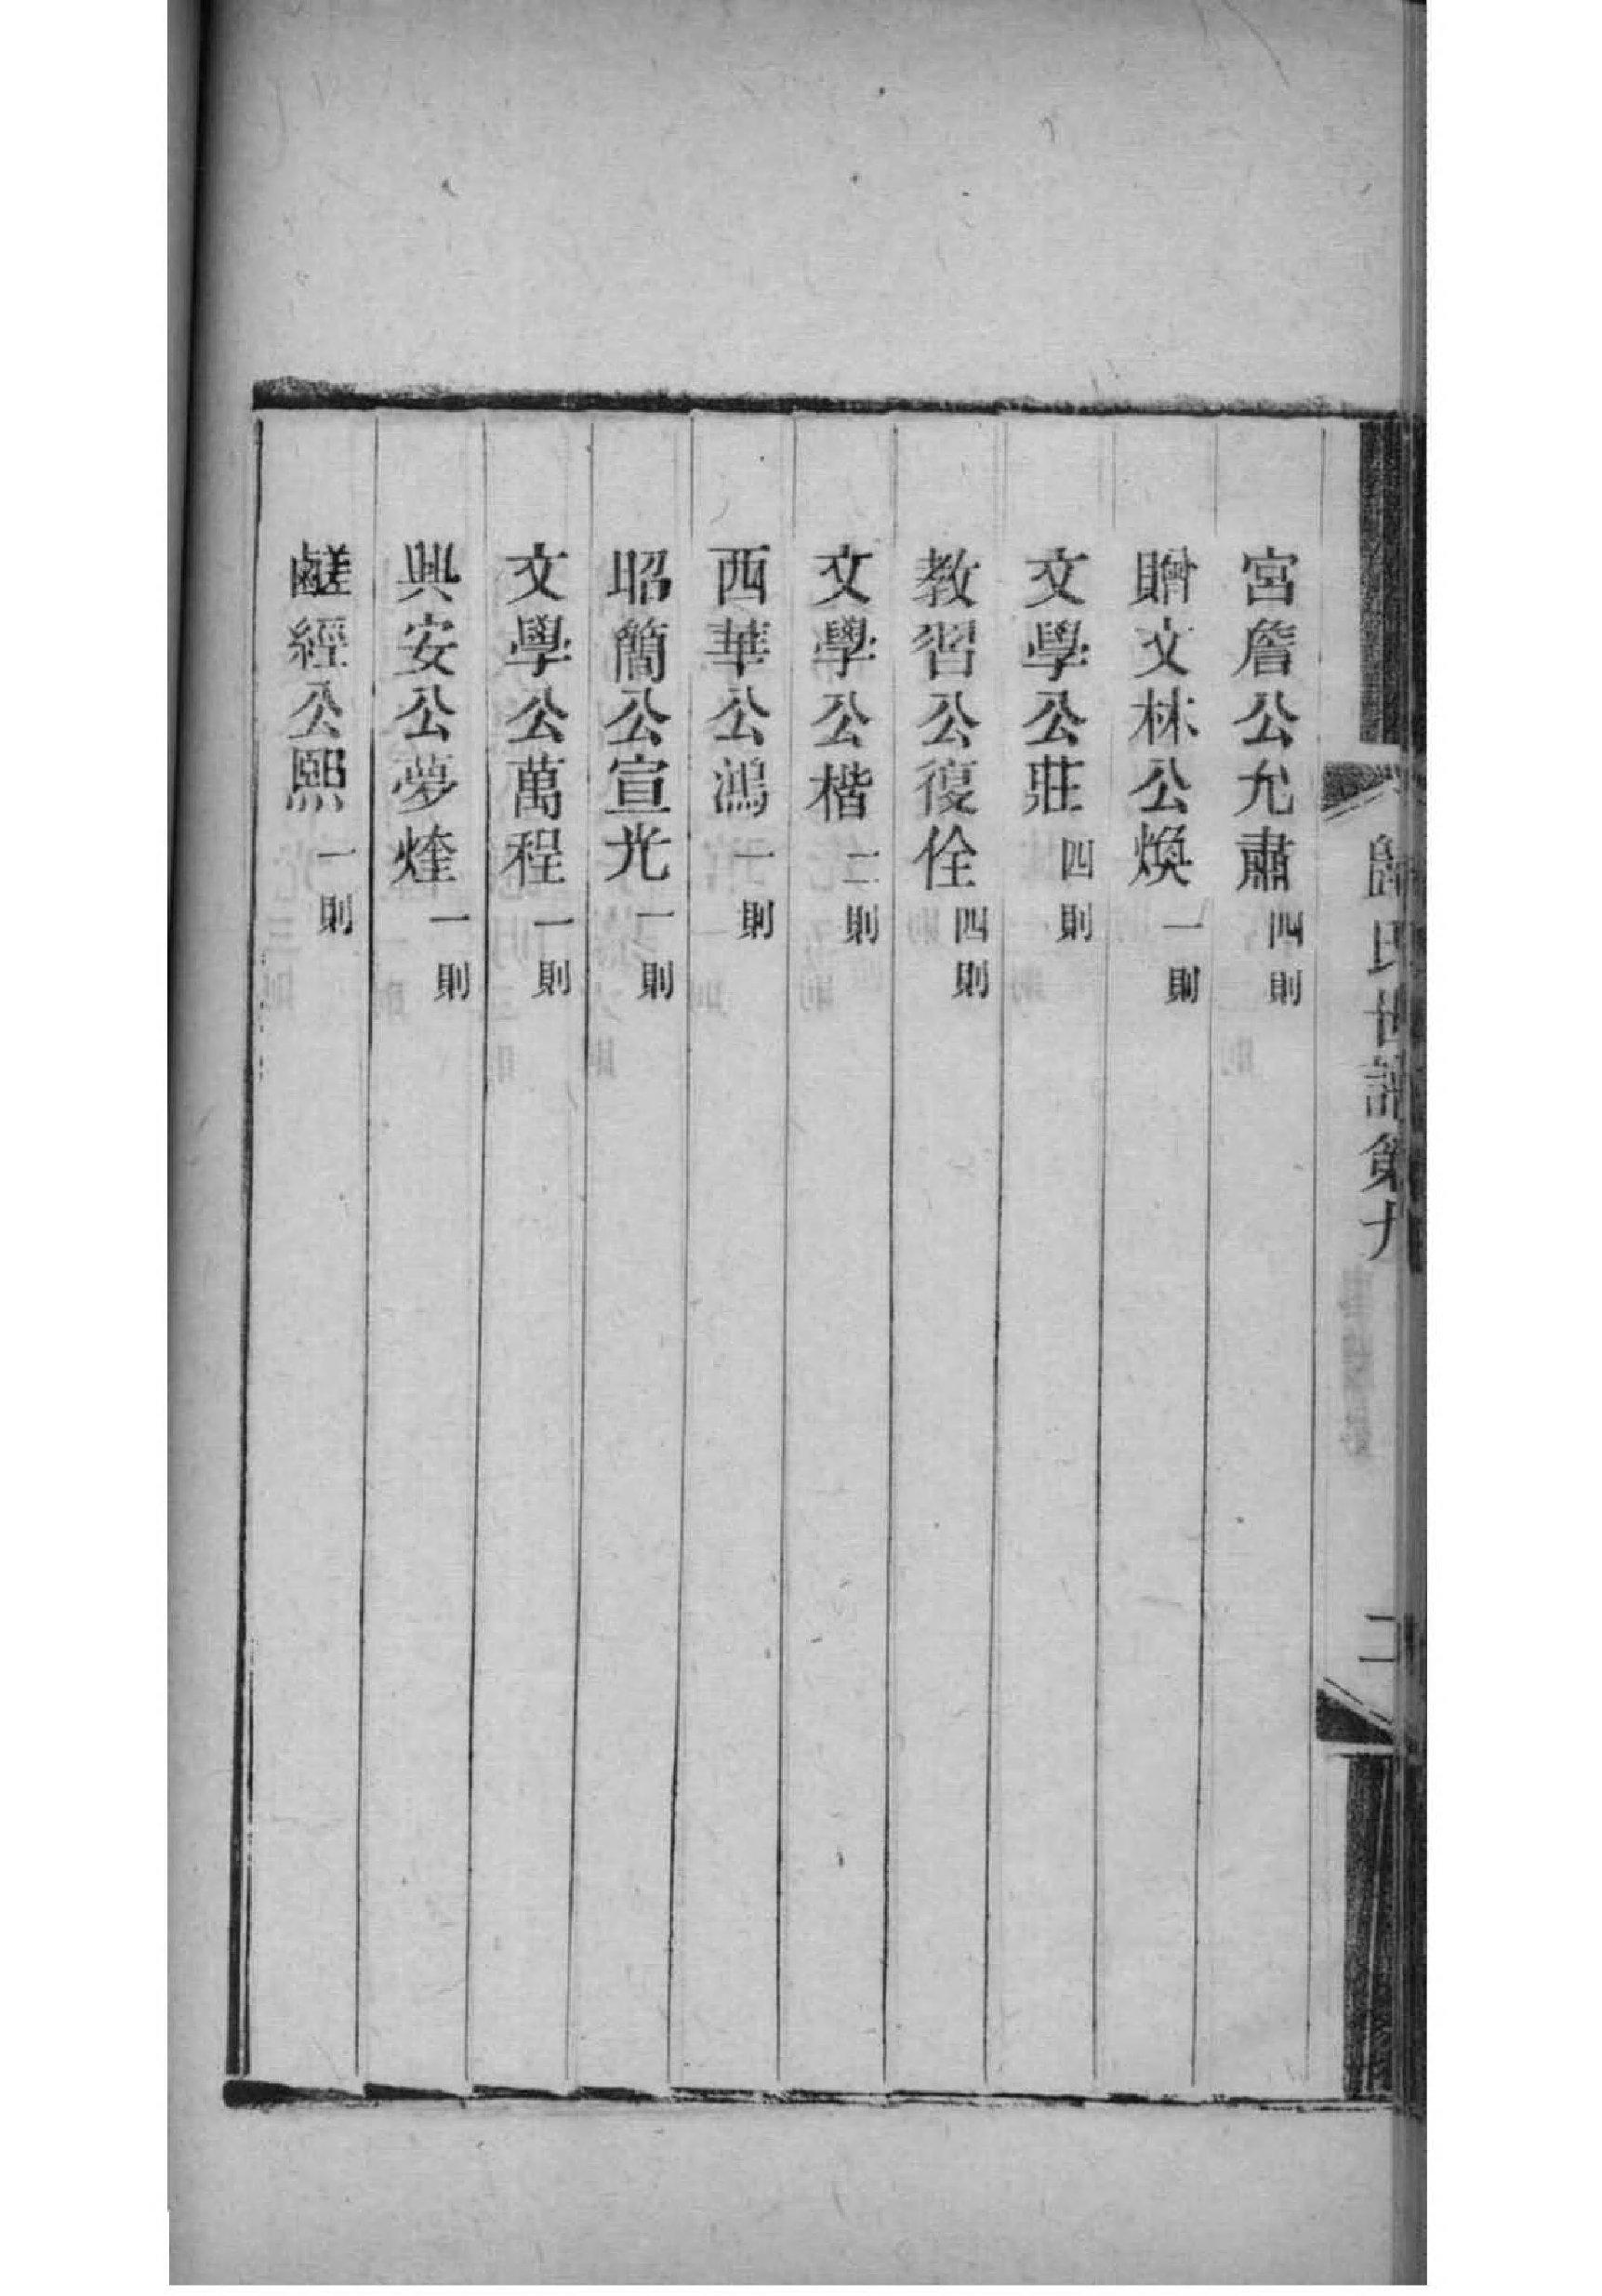 歸氏世譜第九
二
宮詹公允肅四則
贈文林公煥一則
文學公莊四則
教習公復佺四則
文學公楷二則
西華公鴻一則
昭簡公宣光一則
文學公萬程一則
興安公夢煃一則
鹺經公熙一則